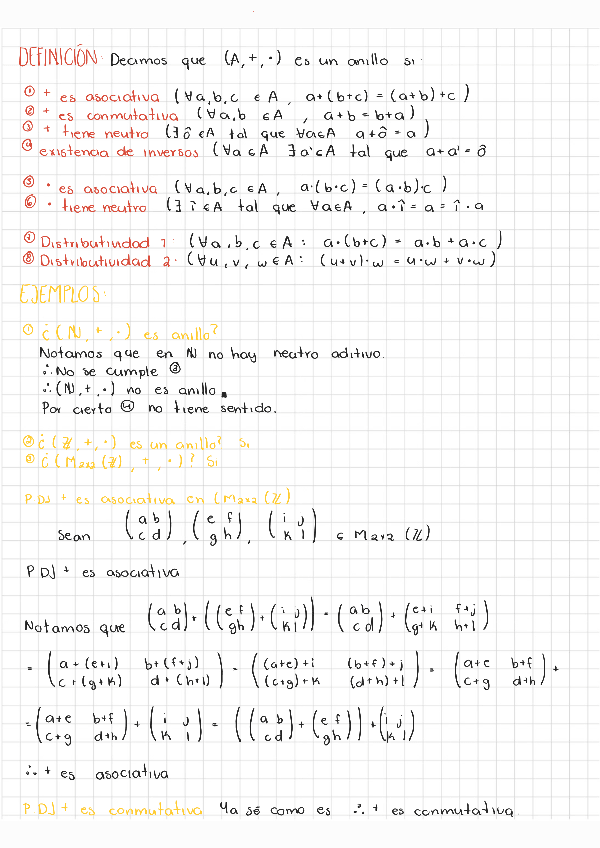 DEFINICIÓN: Decimos que (A, +, ·) es un anillo si:
① + es asociativa (∀a,b,c ∈ A, a+(b+c) = (a+b)+c)
② + es conmutativa (∀a,b ∈ A, a+b = b+a)
③ + tiene neutro (∃ ô ∈A tal que ∀a∈A a+ô = a)
④ existencia de inversos (∀a ∈A ∃a'∈A tal que a+a' = ô
⑤ · es asociativa (∀a,b,c ∈A, a·(b·c) = (a·b)·c)
⑥ · tiene neutro (∃ î ∈A tal que ∀a∈A, a·î = a = î·a
⑦ Distributividad 1: (∀a,b,c ∈A: a·(b+c) = a·b + a·c)
⑧ Distributividad 2: (∀u,v,w∈A: (u+v)·w = u·w + v·w)
EJEMPLOS:
① ¿(ℕ, +, ·) es anillo?
Notamos que en ℕ no hay neutro aditivo.
∴ No se cumple ③
∴ (ℕ, +, ·) no es anillo.
Por cierto ④ no tiene sentido.
② ¿(ℤ, +, ·) es un anillo? Si
③ ¿(M₂ₓ₂(ℤ), +, ·)? Si
P.DJ + es asociativa en (M₂ₓ₂(ℤ)
Sean (a b / c d), (e f / g h), (i j / k l) ∈ M₂ₓ₂(ℤ)
P.DJ + es asociativa
Notamos que (a b / c d) + ((e f / g h) + (i j / k l)) = (a b / c d) + (e+i f+j / g+k h+l)
= (a+(e+i) b+(f+j) / c+(g+k) d+(h+l)) = ((a+e)+i (b+f)+j / (c+g)+k (d+h)+l) = (a+e b+f / c+g d+h) +
= (a+e b+f / c+g d+h) + (i j / k l) = ((a b / c d) + (e f / g h)) + (i j / k l)
∴ + es asociativa
P.DJ + es conmutativa Ya sé como es ∴ + es conmutativa